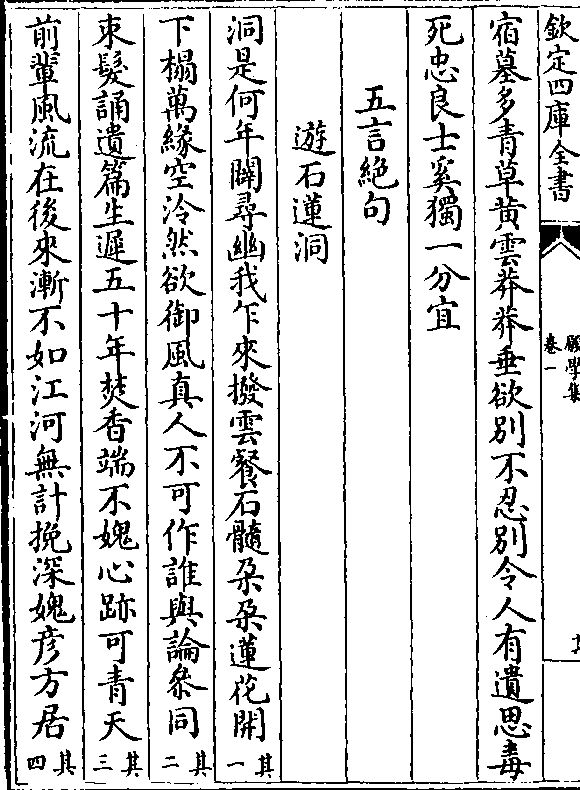 欽定四庫全書
願學集
卷一
宿墓多青草黄雲莽莽垂欲别不忍别令人有遺思毒
死忠良士奚獨一分宜
五言絶句
遊石蓮洞
洞是何年闢尋幽我乍來撥雲餐石髓朶朶蓮花開其一
下榻萬緣空泠然欲御風真人不可作誰與論叅同其二
束髮誦遺篇生遲五十年焚香端不媿心跡可青天其三
前輩風流在後來漸不如江河無計挽深媿彦方居其四